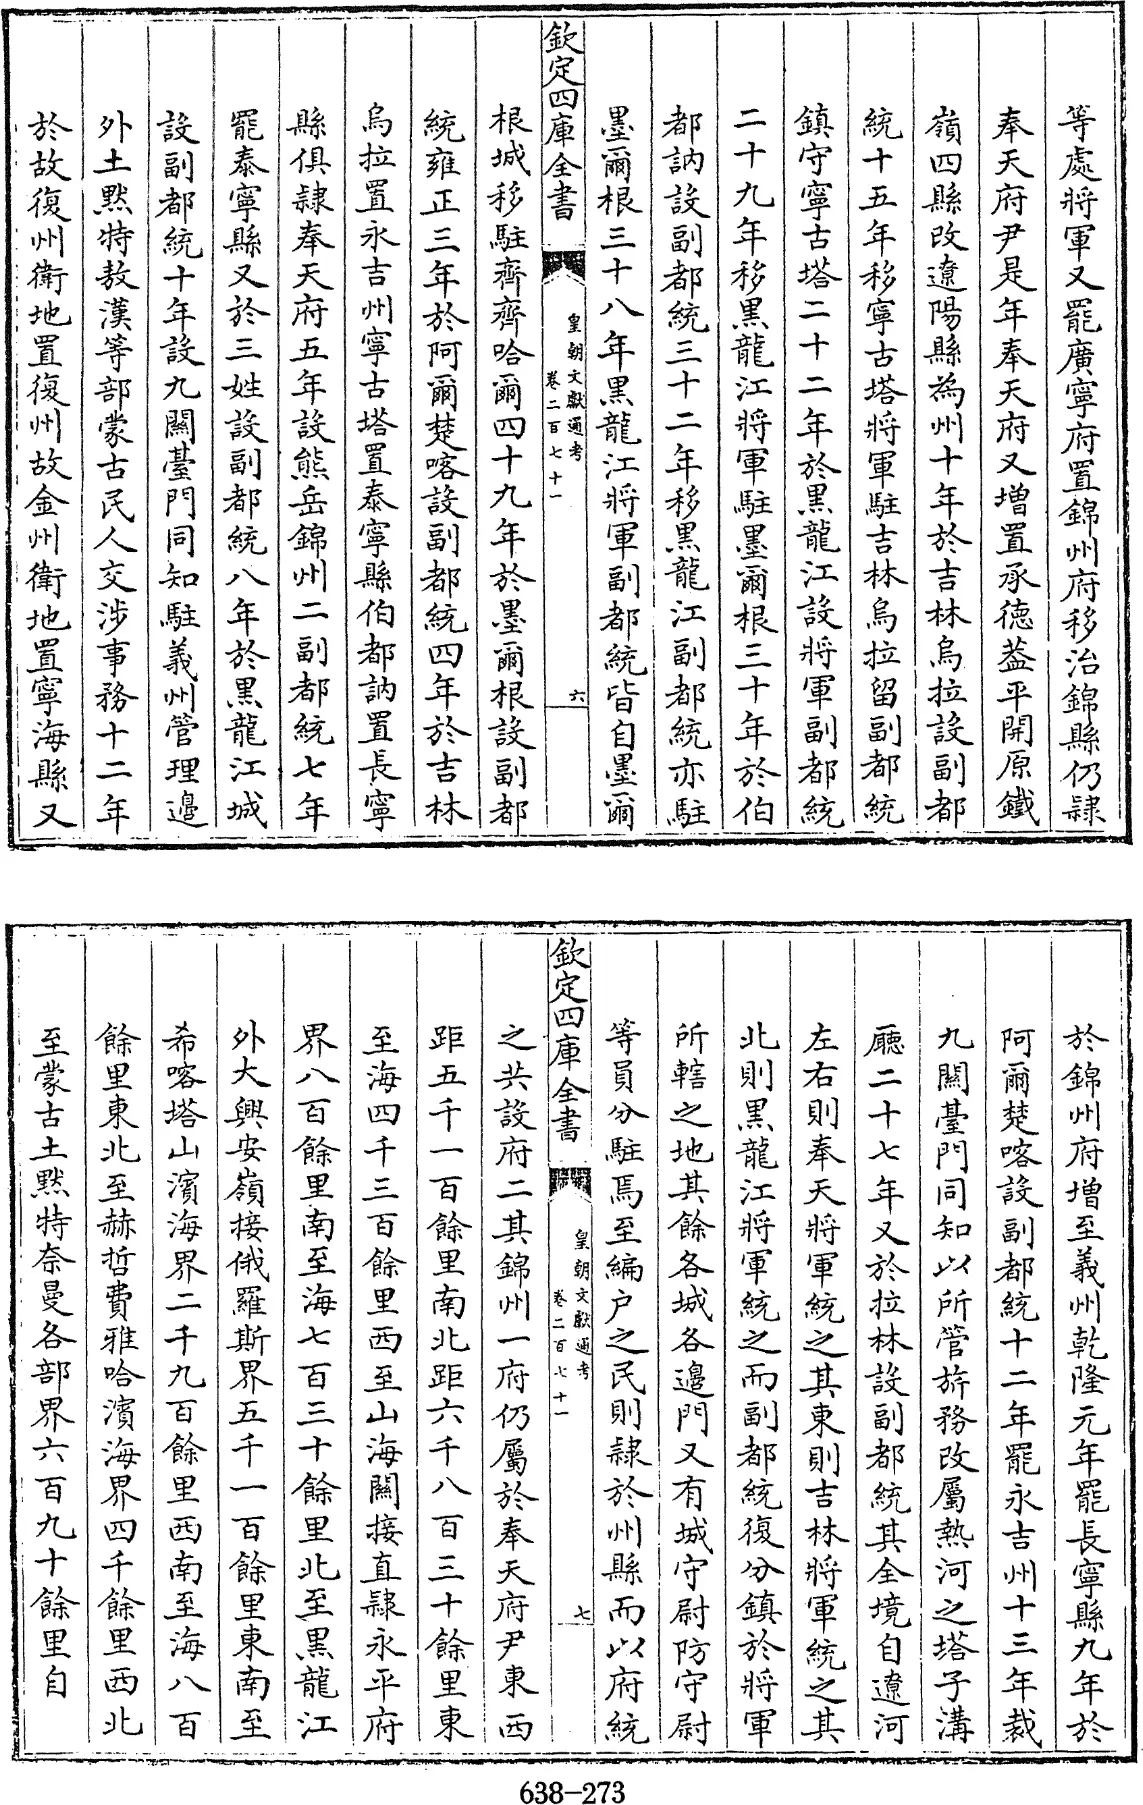 等處將軍又罷廣寧府置錦州府移治錦縣仍隷
奉天府尹是年奉天府又增置承德葢平開原鐵
嶺四縣改遼陽縣為州十年於吉林烏拉設副都
統十五年移寧古塔將軍駐吉林烏拉留副都統
鎮守寧古塔二十二年於黑龍江設將軍副都統
二十九年移黑龍江將軍駐墨爾根三十年於伯
都訥設副都統三十二年移黑龍江副都統亦駐
墨爾根三十八年黑龍江將軍副都統皆自墨爾
欽定四庫全書
皇朝文獻通考
卷二百七十一
六
根城移駐齊齊哈爾四十九年於墨爾根設副都
統雍正三年於阿爾楚喀設副都統四年於吉林
烏拉置永吉州寧古塔置泰寧縣伯都訥置長寧
縣俱隷奉天府五年設熊岳錦州二副都統七年
罷泰寧縣又於三姓設副都統八年於黑龍江城
設副都統十年設九關臺門同知駐義州管理邊
外土黙特敖漢等部蒙古民人交涉事務十二年
於故復州衛地置復州故金州衛地置寧海縣又
於錦州府增至義州乾隆元年罷長寧縣九年於
阿爾楚喀設副都統十二年罷永吉州十三年裁
九關臺門同知以所管旂務改屬熱河之塔子溝
廳二十七年又於拉林設副都統其全境自遼河
左右則奉天將軍統之其東則吉林將軍統之其
北則黑龍江將軍統之而副都統復分鎮於將軍
所轄之地其餘各城各邊門又有城守尉防守尉
等員分駐焉至編户之民則隷於州縣而以府統
欽定四庫全書
皇朝文獻通考
卷二百七十一
七
之共設府二其錦州一府仍屬於奉天府尹東西
距五千一百餘里南北距六千八百三十餘里東
至海四千三百餘里西至山海關接直隷永平府
界八百餘里南至海七百三十餘里北至黑龍江
外大興安嶺接俄羅斯界五千一百餘里東南至
希喀塔山濱海界二千九百餘里西南至海八百
餘里東北至赫哲費雅哈濱海界四千餘里西北
至蒙古土黙特奈曼各部界六百九十餘里自
638-273